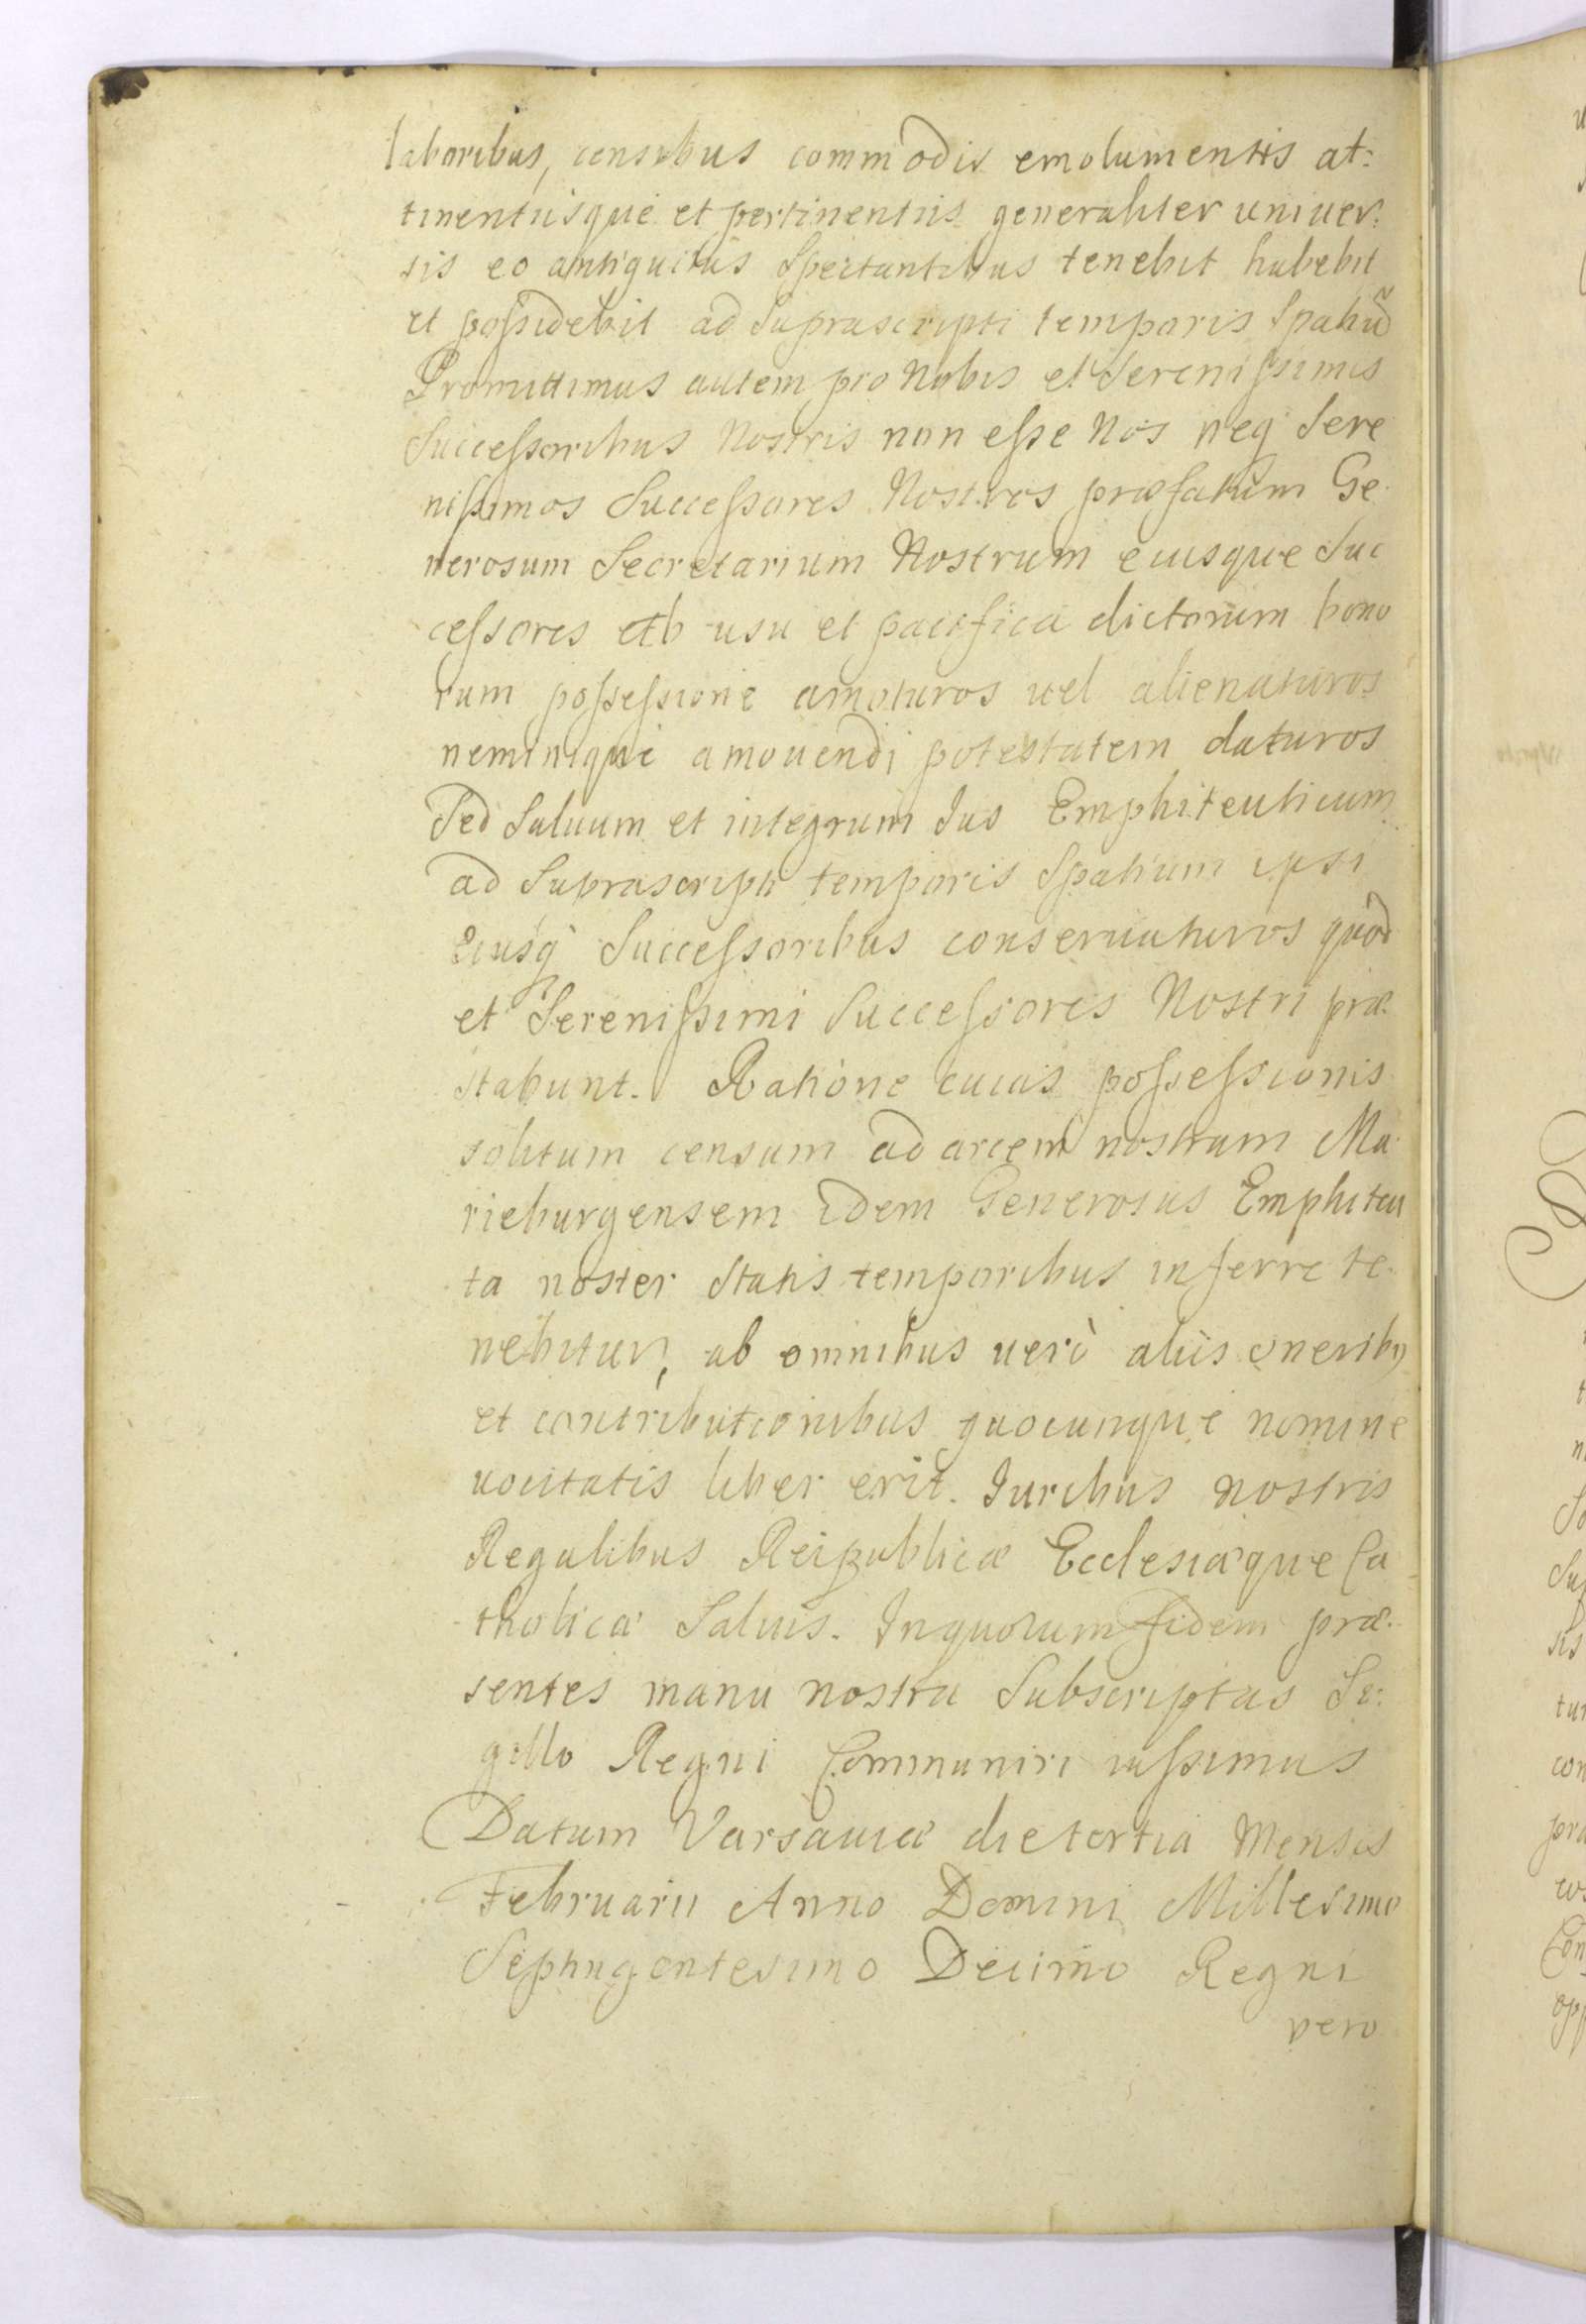 laboribus, censibus commodis emolumentis at:
tinentiisque et pertinentiis generaliter uniuer:
sis eo antiquitus Spectantibus tenebit habebit
et poſsidebit ad Suprascripti temporis Spatiũ
Promittimus autem pro Nobis et Sereniſsimis
Succeſsoribus Nostris non eſse Nos neq Sere
niſsimos Succeſsores Nostros præfatum Ge.
nerosum Secretarium Nostrum eiusque Suc
ceſsores ab usu et pacifica dictorum bono
rum poſseſsione amoturos uel alienaturos
neminique amouendi potestatem daturos
Sed Saluum et integrum Ius Emphiteuticum
ad Suprascripti temporis Spatium ipsi
Eiusq Succeſsoribus conseruaturos quod
et Sereniſsimi Succeſsores Nostri præ:
stabunt. Ratione cuius poſseſsionis
solitum censum ad arcem nostram Ma
rieburgensem Idem Generosus Emphiteu
ta noster Statis temporibus inferre te.
nebitur, ab omnibus uerò aliis oneribq
et contributionibus quocunque nomine
uocitatis liber erit. Iuribus nostris
Regalibus Reipublicæ Ecclesiæque Ca
tholicæ Saluis. In quorum fidem præ:
sentes manu nostra Subscriptas Si:
gillo Regni Communiri iuſsimus
Datum Varsauiæ die tertia Mensis
Februarii Anno Domini Millesimo
Septingentesimo Decimo Regni
vero